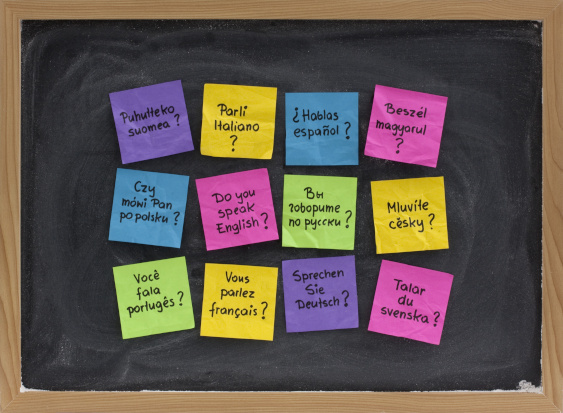 Puhutteko
suomea?
Parli
Italiano
?
¿Hablas
español?
Beszél
magyarul
?
Czy
mówi Pan
po polsku?
Do you
speak
English?
Вы
говорите
по русски?
Mluvíte
cěsky?
Você
fala
portugês?
Vous
parlez
français?
Sprechen
Sie
Deutsch?
Talar
du
svenska?